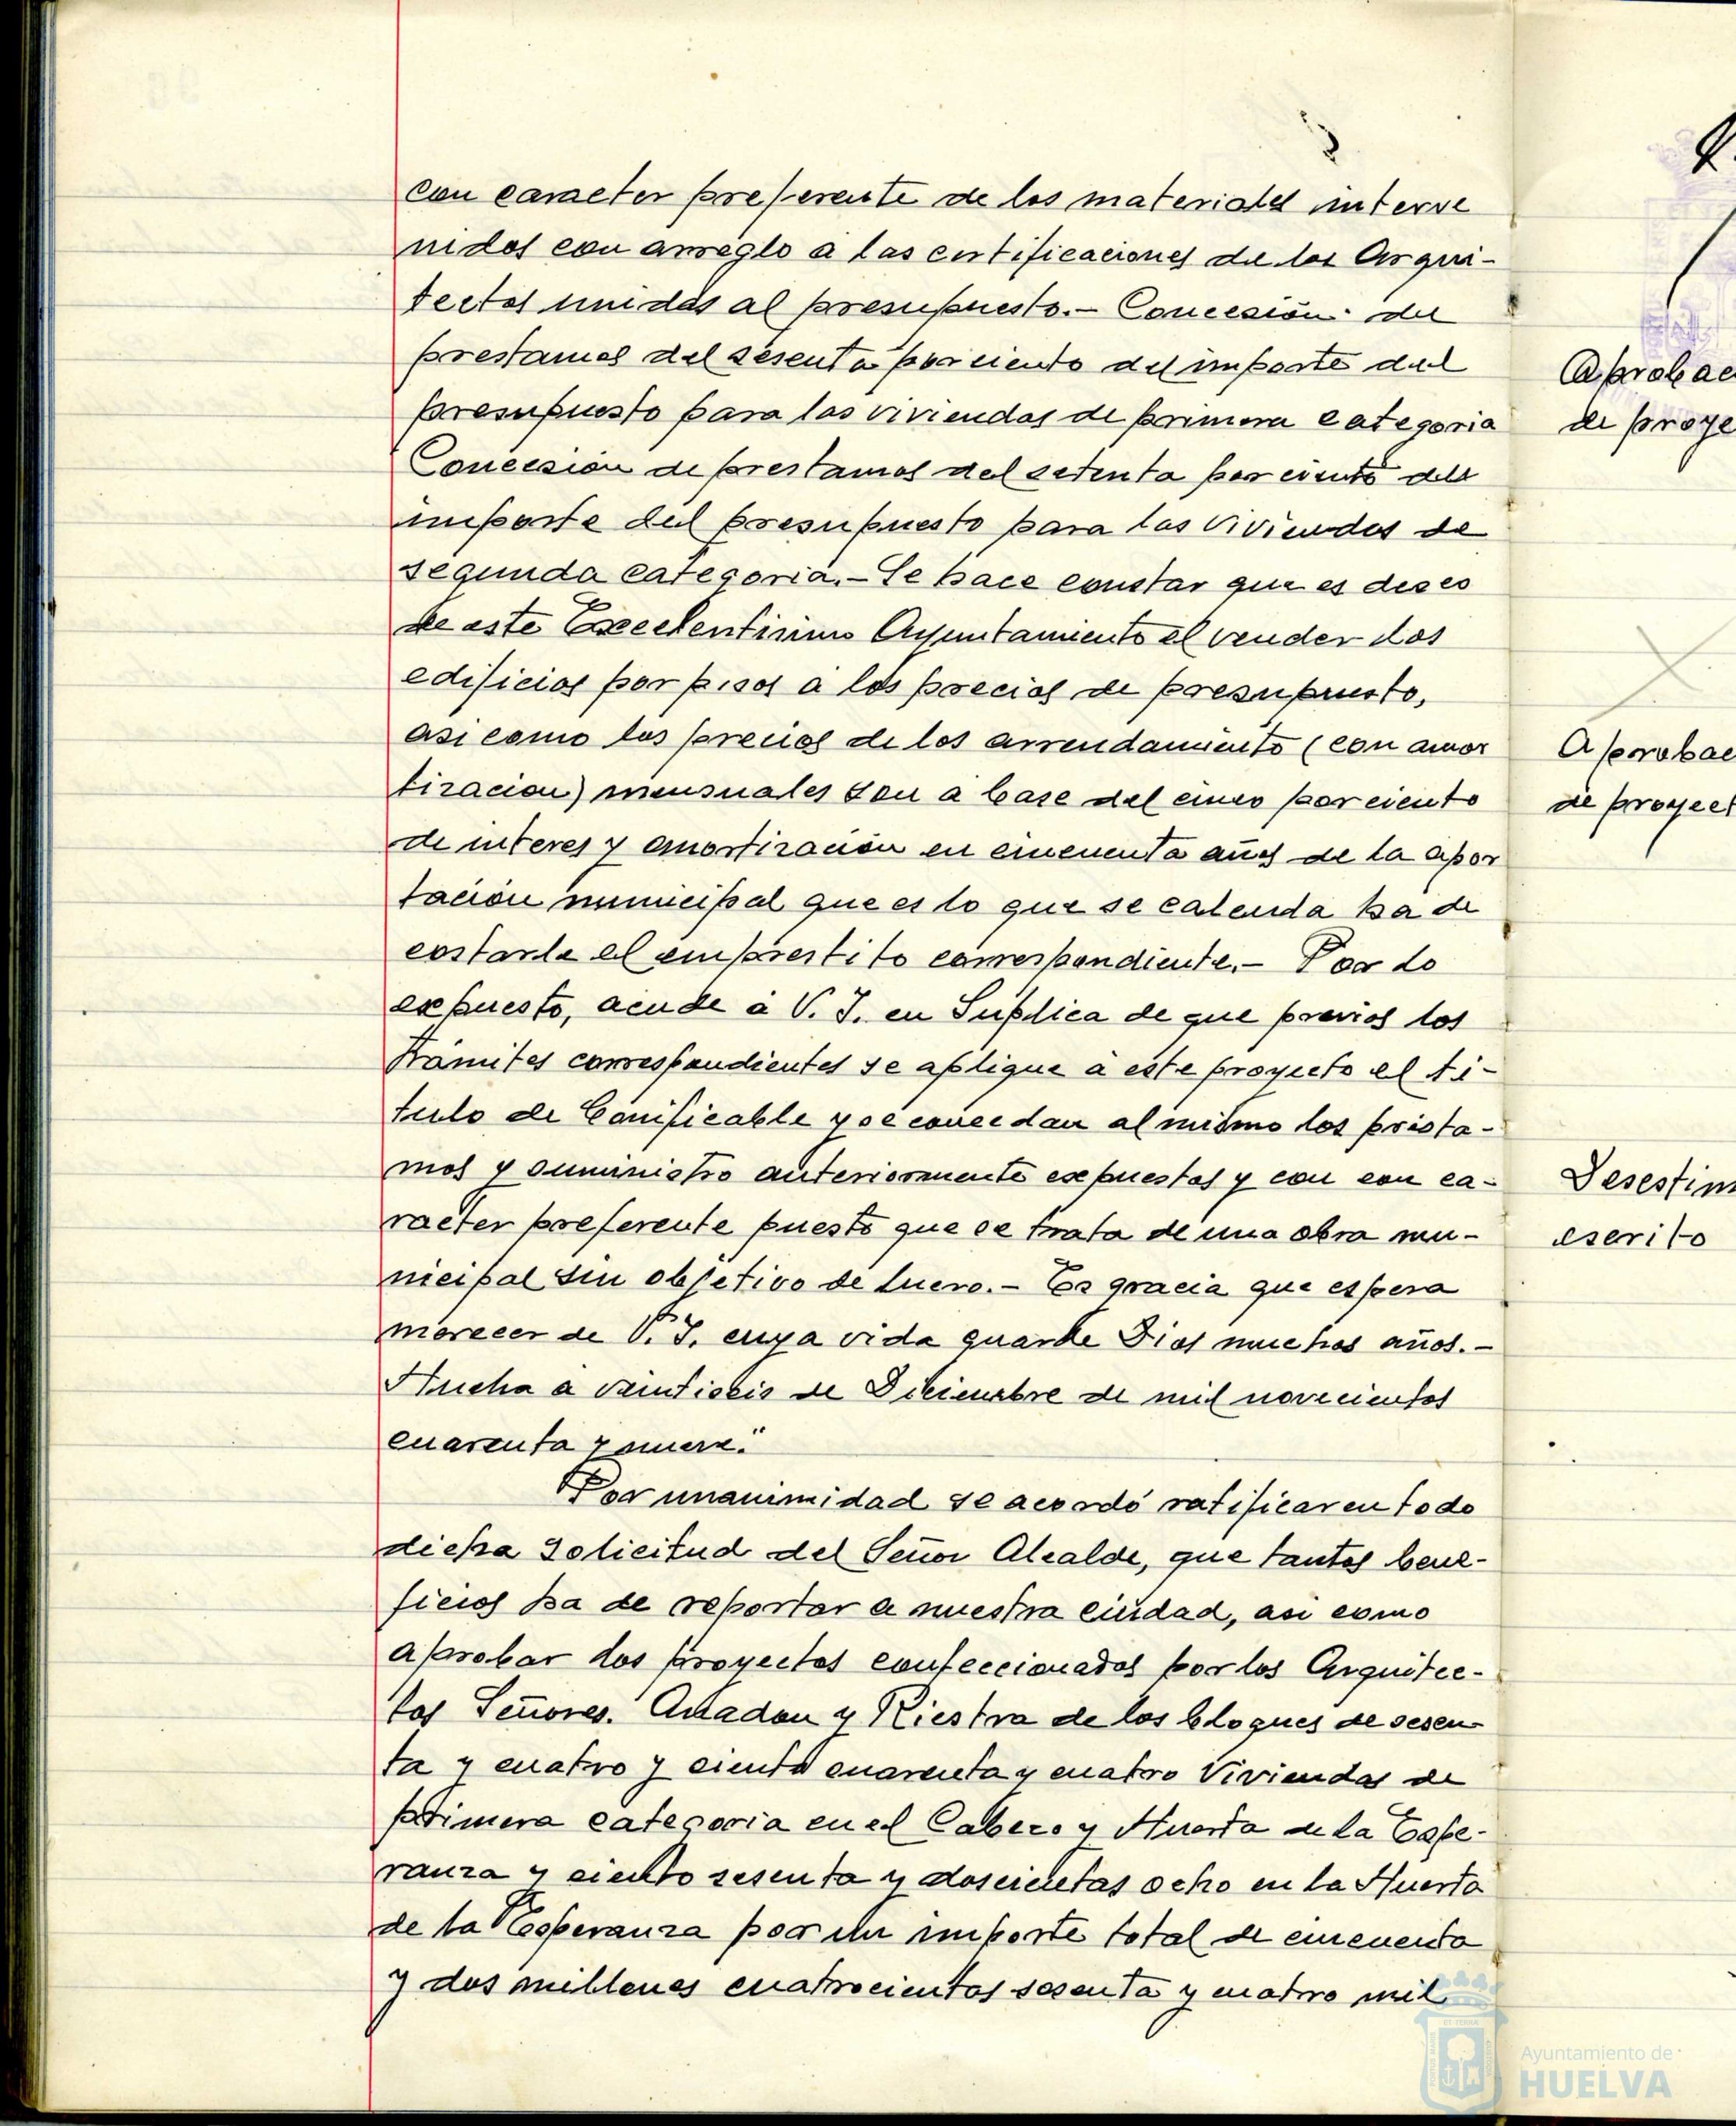 con caracter preferente de los materiales interve
nidos con arreglo a las certificaciones de los Arqui-
tectos unidas al presupuesto.- Concesión de
prestamos del sesenta por ciento del importe del
presupuesto para las viviendas de primera categoria
Concesion de prestamos del setenta por ciento del
importe del presupuesto para las viviendas de
segunda categoria.- Se hace constar que es deseo
de este Excelentisimo Ayuntamiento el vender los
edificios por pisos a los precios de presupuesto,
asi como los precios de los arrendamiento (con amor
tizacion) mensuales son a base del cinco por ciento
de interes y amortización en cincuenta años de la apor
tación municipal que es lo que se calcula ha de
costarle el emprestito correspondiente.- Por lo
expuesto, acude a V. I. en Suplica de que previos los
tramites correspondientes se aplique a este proyecto el ti-
tulo de Bonificable y se concedan al mismo los presta-
mos y suministro anteriormente expuestos y con con ca-
racter preferente puesto que se trata de una obra mu-
nicipal sin objetivo de lucro.- Es gracia que espera
merecer de V. I. cuya vida guarde Dios muchos años.-
Huelva a veintiseis de Diciembre de mil novecientos
cuarenta y nueve."
Por unanimidad se acordó ratificar en todo
dicha Solicitud del Señor Alcalde, que tantos bene-
ficios ha de reportar a nuestra ciudad, asi como
aprobar los proyectos confeccionados por los Arquitec-
tos Señores. Anadon y Riestra de los bloques de sesen
ta y cuatro y ciento cuarenta y cuatro Viviendas de
primera categoria en el Cabezo y Huerta de la Espe-
ranza y ciento sesenta y doscientas ocho en la Huerta
de la Esperanza por un importe total de cincuenta
y dos millones cuatrocientos sesenta y cuatro mil
Aprobac
de proye
Aprobac
de proyect
Desestim
escrito
Ayuntamiento de
HUELVA